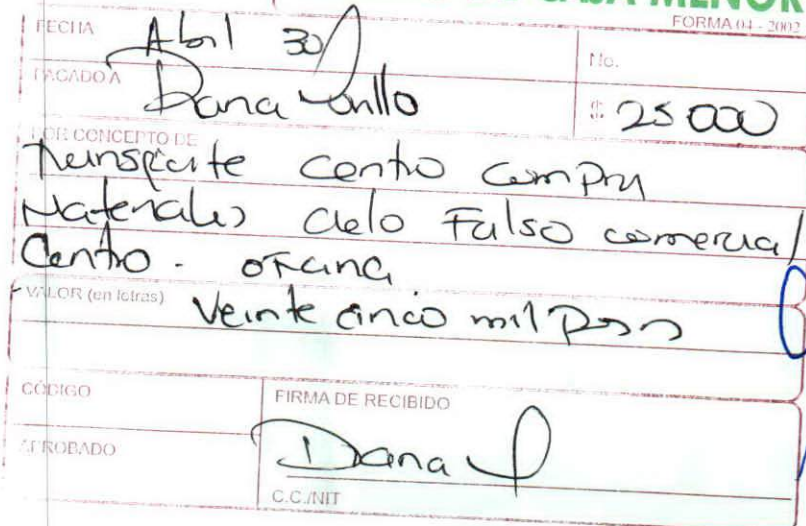 CAJA MENOR
FORMA 04 - 2002
FECHA Abril 30
No.
PAGADO A Dana
$ 25 000
POR CONCEPTO DE
Transporte centro compra
Materiales cielo Falso comercial
Centro - oficina
VALOR (en letras) Veinte cinco mil Pesos
CÓDIGO
FIRMA DE RECIBIDO
APROBADO
Dana
C.C./NIT